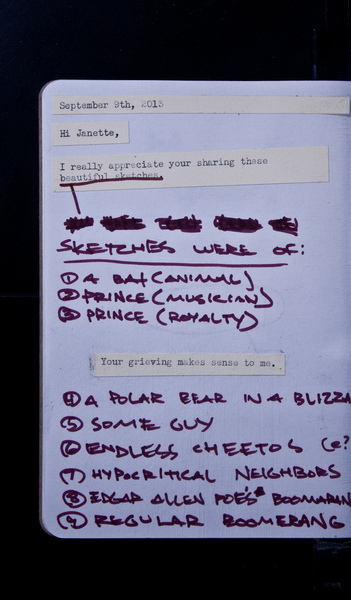 September 9th, 2013
Hi Janette,
I really appreciate your sharing these
beautiful sketches.
SKETCHES WERE OF:
① A BAT (ANIMAL)
② PRINCE (MUSICIAN)
③ PRINCE (ROYALTY)
Your grieving makes sense to me.
④ A POLAR BEAR IN A BLIZZA
⑤ SOME GUY
⑥ ENDLESS CHEETOS (@?
⑦ HYPOCRITICAL NEIGHBORS
⑧ EDGAR ALLEN POE'S BOOMARAN
⑨ REGULAR BOOMERANG